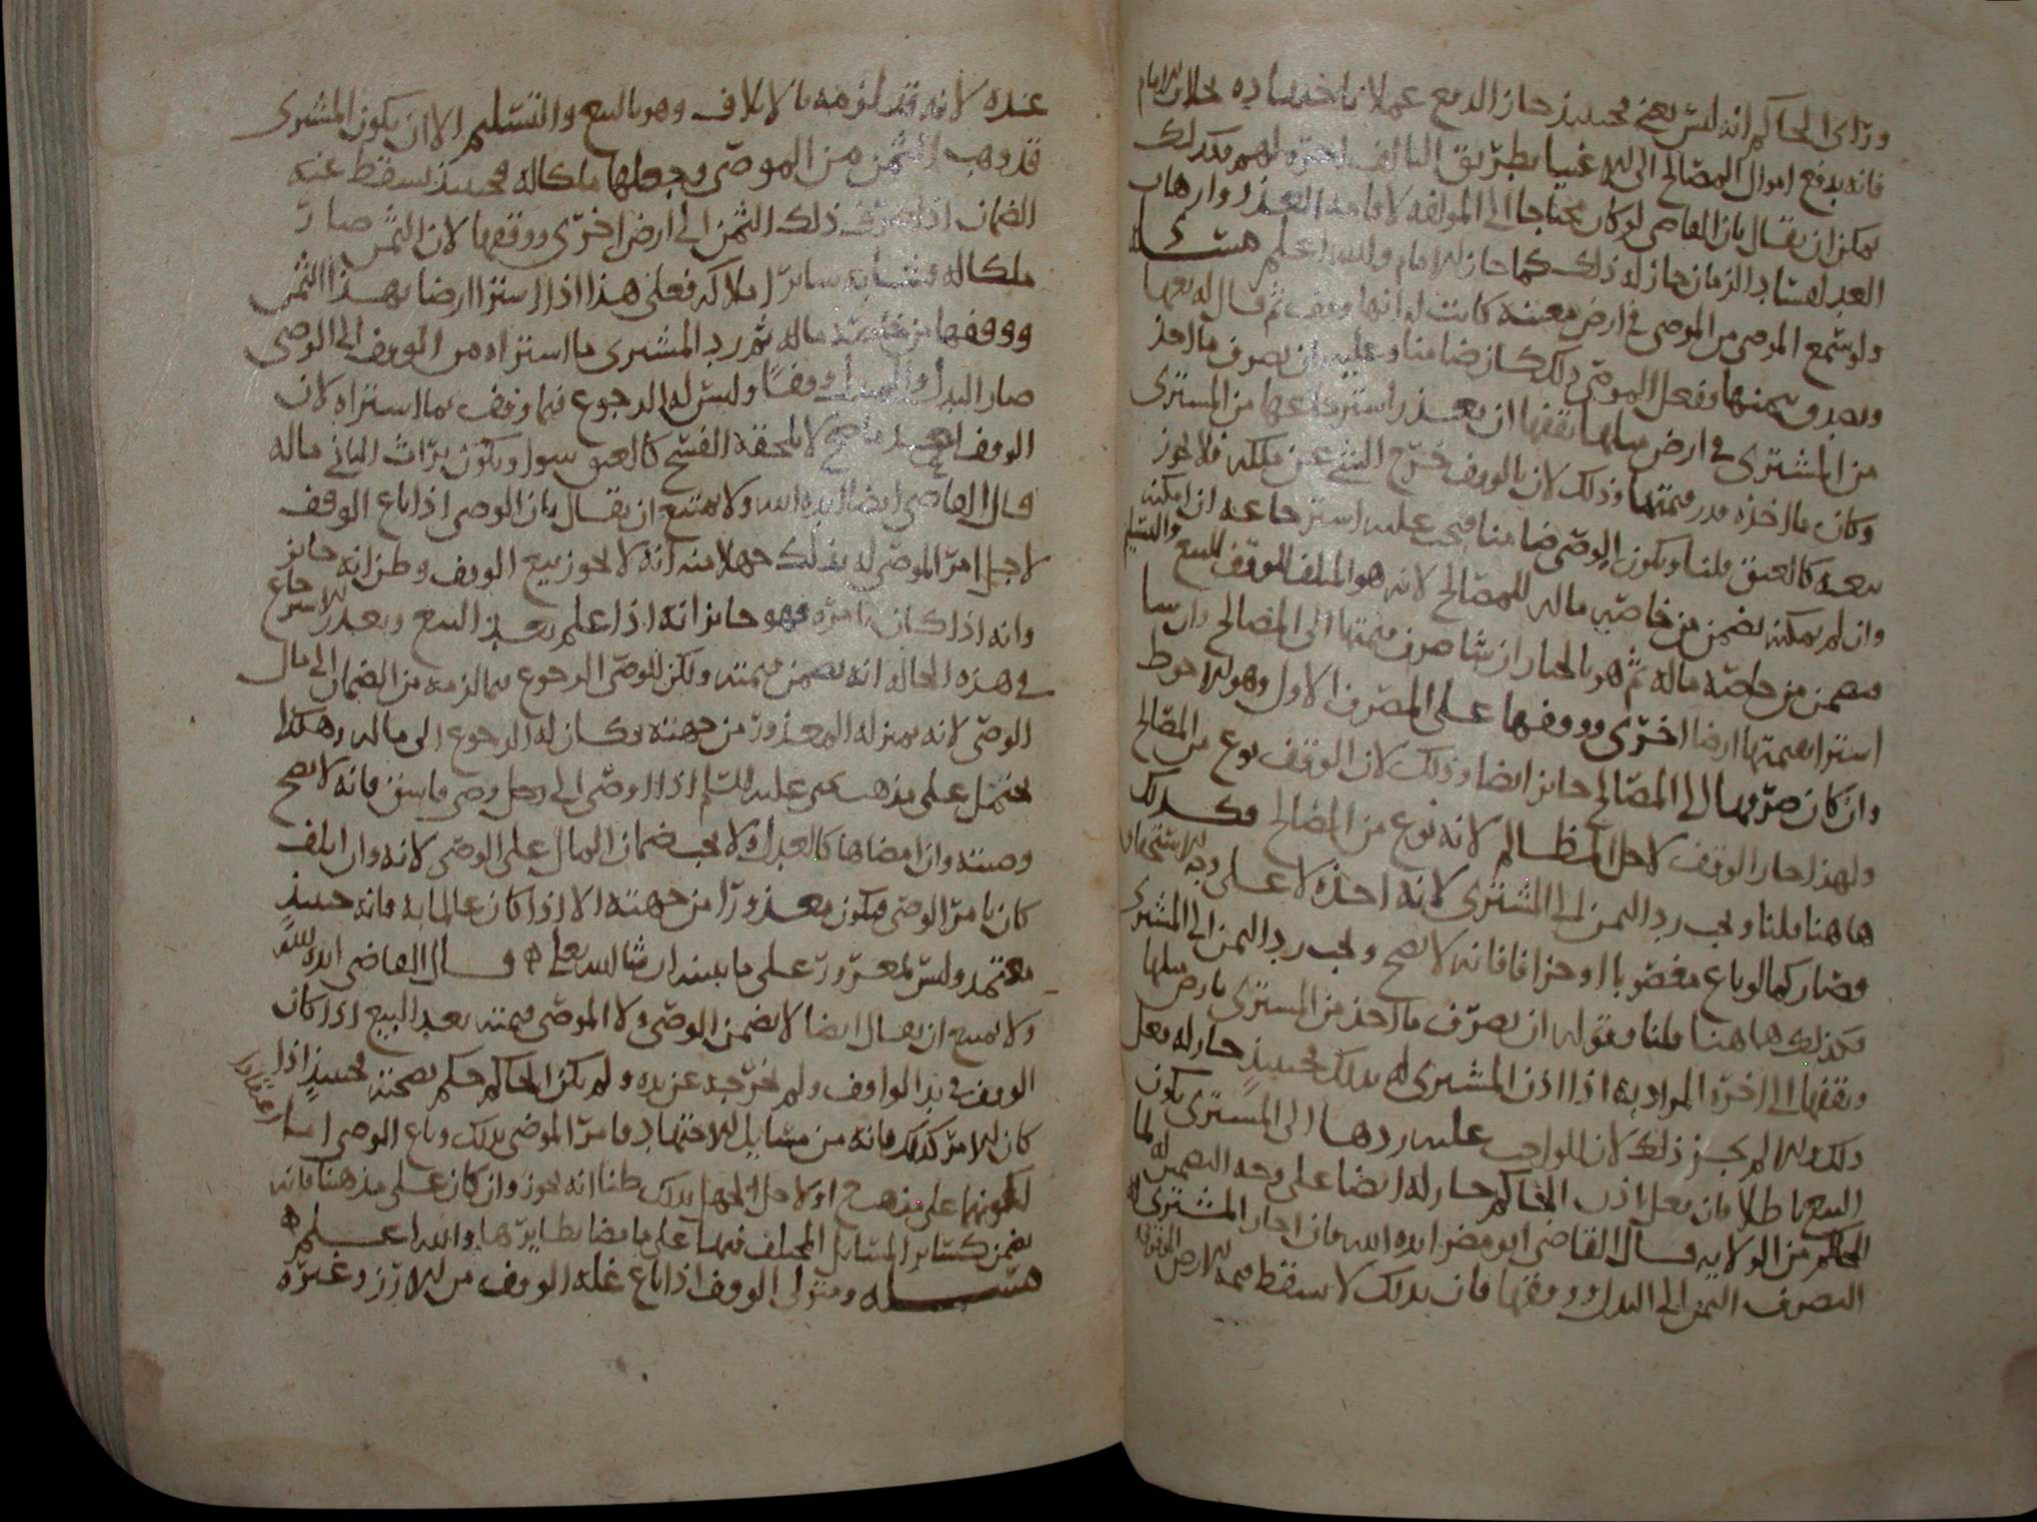 ورأى الحاكم انه ليس بغني فحينئذ جاز الدفع عملا باجتهاده بخلاف الامام
فانه يدفع اموال المصالح الى الاغنيا بطريق التالف لغيره لهم فكذلك
يمكن ان يقال بان القاضي لو كان محتاجا الى المولفه لاقامة العدل وارهاب
العدل لفساد الزمان جاز له ذلك كما جاز للامام والله اعلم مسئلة
ولو سمع الموصى من الموصي في ارض معينة كانت له انها وقف ثم قال له بعها
وتصدق بثمنها ففعل الموصى ذلك كان ضامنا وعليه ان يصرف ما اخذ
من المشتري في ارض مثلها يقفها ان تعذر استرجاعها من المشتري
وكان ما اخذه قدر قيمتها وذلك لان بالوقف خرج الشي عن ملكه فلا يجوز
بيعه كالعتق قلنا ويكون الوصي ضامنا فيجب عليه استرجاعه ان امكنه
وان لم يمكنه يضمن من خاصه ماله للمصالح لانه هو المتلف للوقف بالبيع والتسليم
فيضمن من خاصة ماله ثم هو بالخيار ان شا صرف قيمتها الى المصالح وان شا
اشترا بقيمتها ارضا اخرى ووقفها على المصرف الاول وهو الاحوط
وان كان صرفها الى المصالح جائز ايضا وذلك لان الوقف نوع من المصالح
ولهذا جاز الوقف لاجل المظالم لانه نوع من المصالح فكذلك
هاهنا قلنا ويجب رد الثمن الى المشتري لانه اخذه لا على وجه الاستحقاق
فصار كما لو باع مغصوبا او جزافا فانه لا يصح ويجب رد الثمن الى المشتري
فكذلك هاهنا قلنا وقوله ان يصرف ما اخذ من المشتري بارض مثلها
ويقفها الى اخره المراد به اذا اذن المشتري له بذلك فحينئذ جاز له فعل
ذلك والا لم يجز ذلك لان الواجب عليه ردها الى المشتري يكون
البيع باطلا فان فعل اذن الحاكم جاز له ايضا على وجه التضمين له لما
للحاكم من الولاية قال القاضي ابو مضر ايده الله فان اجاز المشتري له
التصرف الثمن الى البدل ووقفها فان بذلك لا يسقط قيمة الارض الموقوفه
عنده لانه قد لزمه بالاتلاف وهو بالبيع والتسليم الا ان يكون المشتري
قد وهب الثمن من الموصى وجعلها ملكا له فحينئذ يسقط عنه
الضمان اذا صرف ذلك الثمن الى ارض اخرى ووقفها لان الثمن صار
ملكا له فشابه سائر املاكه فعلى هذا اذا اشترا ارضا بهذا الثمن
ووقفها من خاصة ماله ثم رد المشتري ما اشتراه من الوقف الى الوصي
صار البدل والمبدل وقفا وليس له الرجوع فيما وقف بما اشتراه لان
الوقف بعد ما صح لا يلحقه الفسخ كالعتق سوا ويكون تراث الباني ماله
قال القاضي ايضا ايده الله ولا يمتنع ان يقال بان الوصي اذا باع الوقف
لاجل امر الموصي له بذلك جهلا منه انه لا يجوز بيع الوقف وظن انه جائز
وانه اذا كان بامره فهو جائز انه اذا علم بعد البيع وتعذر الاسترجاع
في هذه الحاله انه يضمن قيمته ولكن للوصي الرجوع بما لزمه من الضمان الى مال
الوصي لانه بمنزلة المعذور من جهته فكان له الرجوع الى ماله وهكذا
يحتمل على مذهب يحيى عليه السلم اذا اوصى الى رجل وصي فاسق فانه لا يصح
وصيته وان امضاها كالعدل ولا يجب ضمان المال على الوصي لانه وان اتلف
كان بامر الوصي فيكون معذورا من جهته الا اذا كان عالما به فانه حينئذ
معتمد وليس بمعذور على ما نبينه ان شا الله تعالى قال القاضي ايده الله
ولا يمتنع ان يقال ايضا لا يضمن الوصي ولا الموصي قيمته بعد البيع اذا كان
الوقف في يد الواقف ولم يخرجه عن يده ولم يكن الحاكم حكم بصحته فحينئذ اذا
كان الامر كذلك فانه من مسائل الاجتهاد فامر الموصي بذلك وباع الوصي اما
لكونهما على مذهب ح او لاجل الجهل بذلك ظنا انه يجوز وان كان على مذهبنا فانه
يضمن كسائر المسائل المختلف فيها على ما مضا نظايرها والله اعلم
مسئلة ومتولي الوقف اذا باع غلة الوقف من الارز وغيره